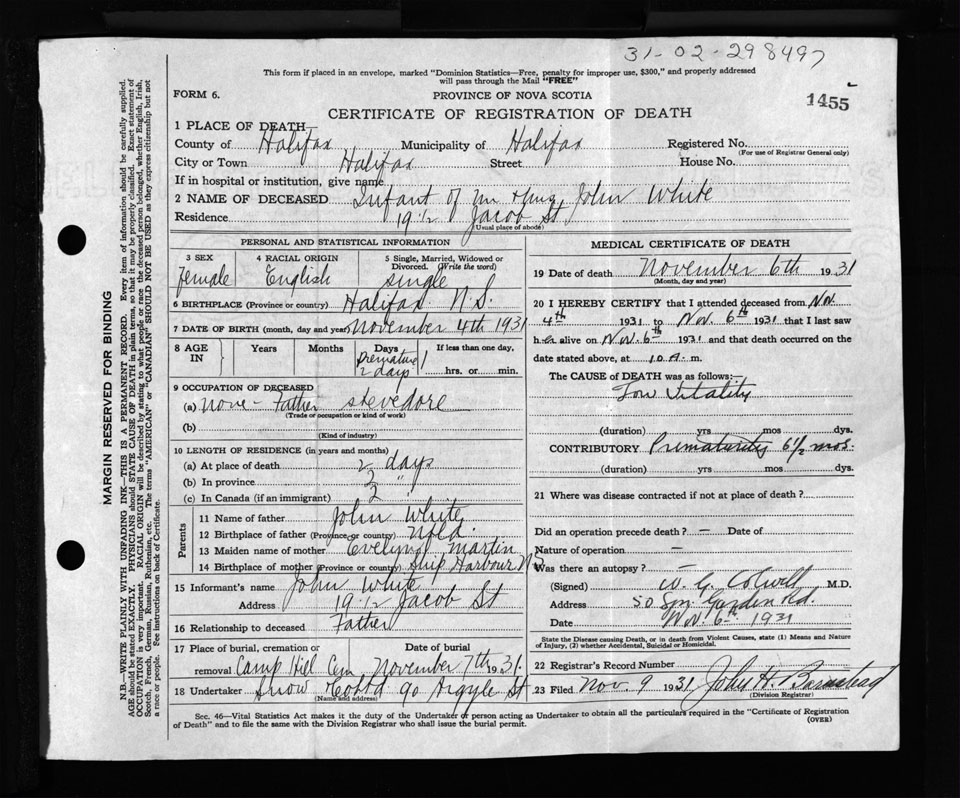 31-02-298497
This form if placed in an envelope, marked "Dominion Statistics—Free, penalty for improper use, $300," and properly addressed
will pass through the Mail "FREE"
FORM 6.
PROVINCE OF NOVA SCOTIA
1455
CERTIFICATE OF REGISTRATION OF DEATH
1 PLACE OF DEATH—
County of Halifax Municipality of Halifax Registered No.
(For use of Registrar General only)
City or Town Halifax Street House No.
If in hospital or institution, give name
2 NAME OF DECEASED Infant of Mr & Mrs John White
Residence 19 1/2 Jacob St.
(Usual place of abode)
PERSONAL AND STATISTICAL INFORMATION
3 SEX
female
4 RACIAL ORIGIN
English
5 Single, Married, Widowed or
Divorced. (Write the word)
single
6 BIRTHPLACE (Province or country) Halifax N.S.
7 DATE OF BIRTH (month, day and year) November 4th 1931
8 AGE
IN
Years
Months
Days
Premature
2 days
If less than one day,
hrs. or min.
9 OCCUPATION OF DECEASED
(a) none - Father stevedore
(Trade or occupation or kind of work)
(b)
(Kind of industry)
10 LENGTH OF RESIDENCE (in years and months)
(a) At place of death 2 days
(b) In province 2 "
(c) In Canada (if an immigrant) 2
Parents
11 Name of father John White
12 Birthplace of father (Province or country) Nfld.
13 Maiden name of mother Evelyn Martin
14 Birthplace of mother (Province or country) Ship Harbour NS
15 Informant's name John White
Address 19 1/2 Jacob St
16 Relationship to deceased Father
17 Place of burial, cremation or
removal Camp Hill Cem
Date of burial
November 7th 1931.
18 Undertaker Snow Co Ltd 90 Argyle St
(Name and address)
MEDICAL CERTIFICATE OF DEATH
19 Date of death November 6th 1931
(Month, day and year)
20 I HEREBY CERTIFY that I attended deceased from Nov.
4th 1931 to Nov. 6th 1931 that I last saw
her alive on Nov. 6th 1931 and that death occurred on the
date stated above, at 10 A. m.
The CAUSE of DEATH was as follows:—
Low Vitality
(duration) yrs mos dys.
CONTRIBUTORY Prematurity 6 1/2 mos.
(duration) yrs. mos. dys.
21 Where was disease contracted if not at place of death?
Did an operation precede death? — Date of
Nature of operation —
Was there an autopsy? —
(Signed) W. G. Colwell M.D.
Address 50 Spr. Garden Rd.
Date Nov. 6th 1931
State the Disease causing Death, or in death from Violent Causes, state (1) Means and Nature
of Injury, (2) whether Accidental, Suicidal or Homicidal.
22 Registrar's Record Number
23 Filed Nov. 9 1931 John H. Barnstead
(Division Registrar)
Sec. 46—Vital Statistics Act makes it the duty of the Undertaker or person acting as Undertaker to obtain all the particulars required in the "Certificate of Registration
of Death" and to file the same with the Division Registrar who shall issue the burial permit.
(OVER)
MARGIN RESERVED FOR BINDING
N.B.—WRITE PLAINLY WITH UNFADING INK—THIS IS A PERMANENT RECORD. Every item of information should be carefully supplied.
AGE should be stated EXACTLY. PHYSICIANS should STATE CAUSE OF DEATH in plain terms, so that it may be properly classified. Exact statement of
OCCUPATION is very important. RACIAL ORIGIN will be described by stating to what people or race the deceased person belonged, whether English, Irish,
Scotch, French, German, Russian, Ruthenian, etc. The terms "AMERICAN" or "CANADIAN" SHOULD NOT BE USED as they express citizenship but not
a race or people. See instructions on back of Certificate.